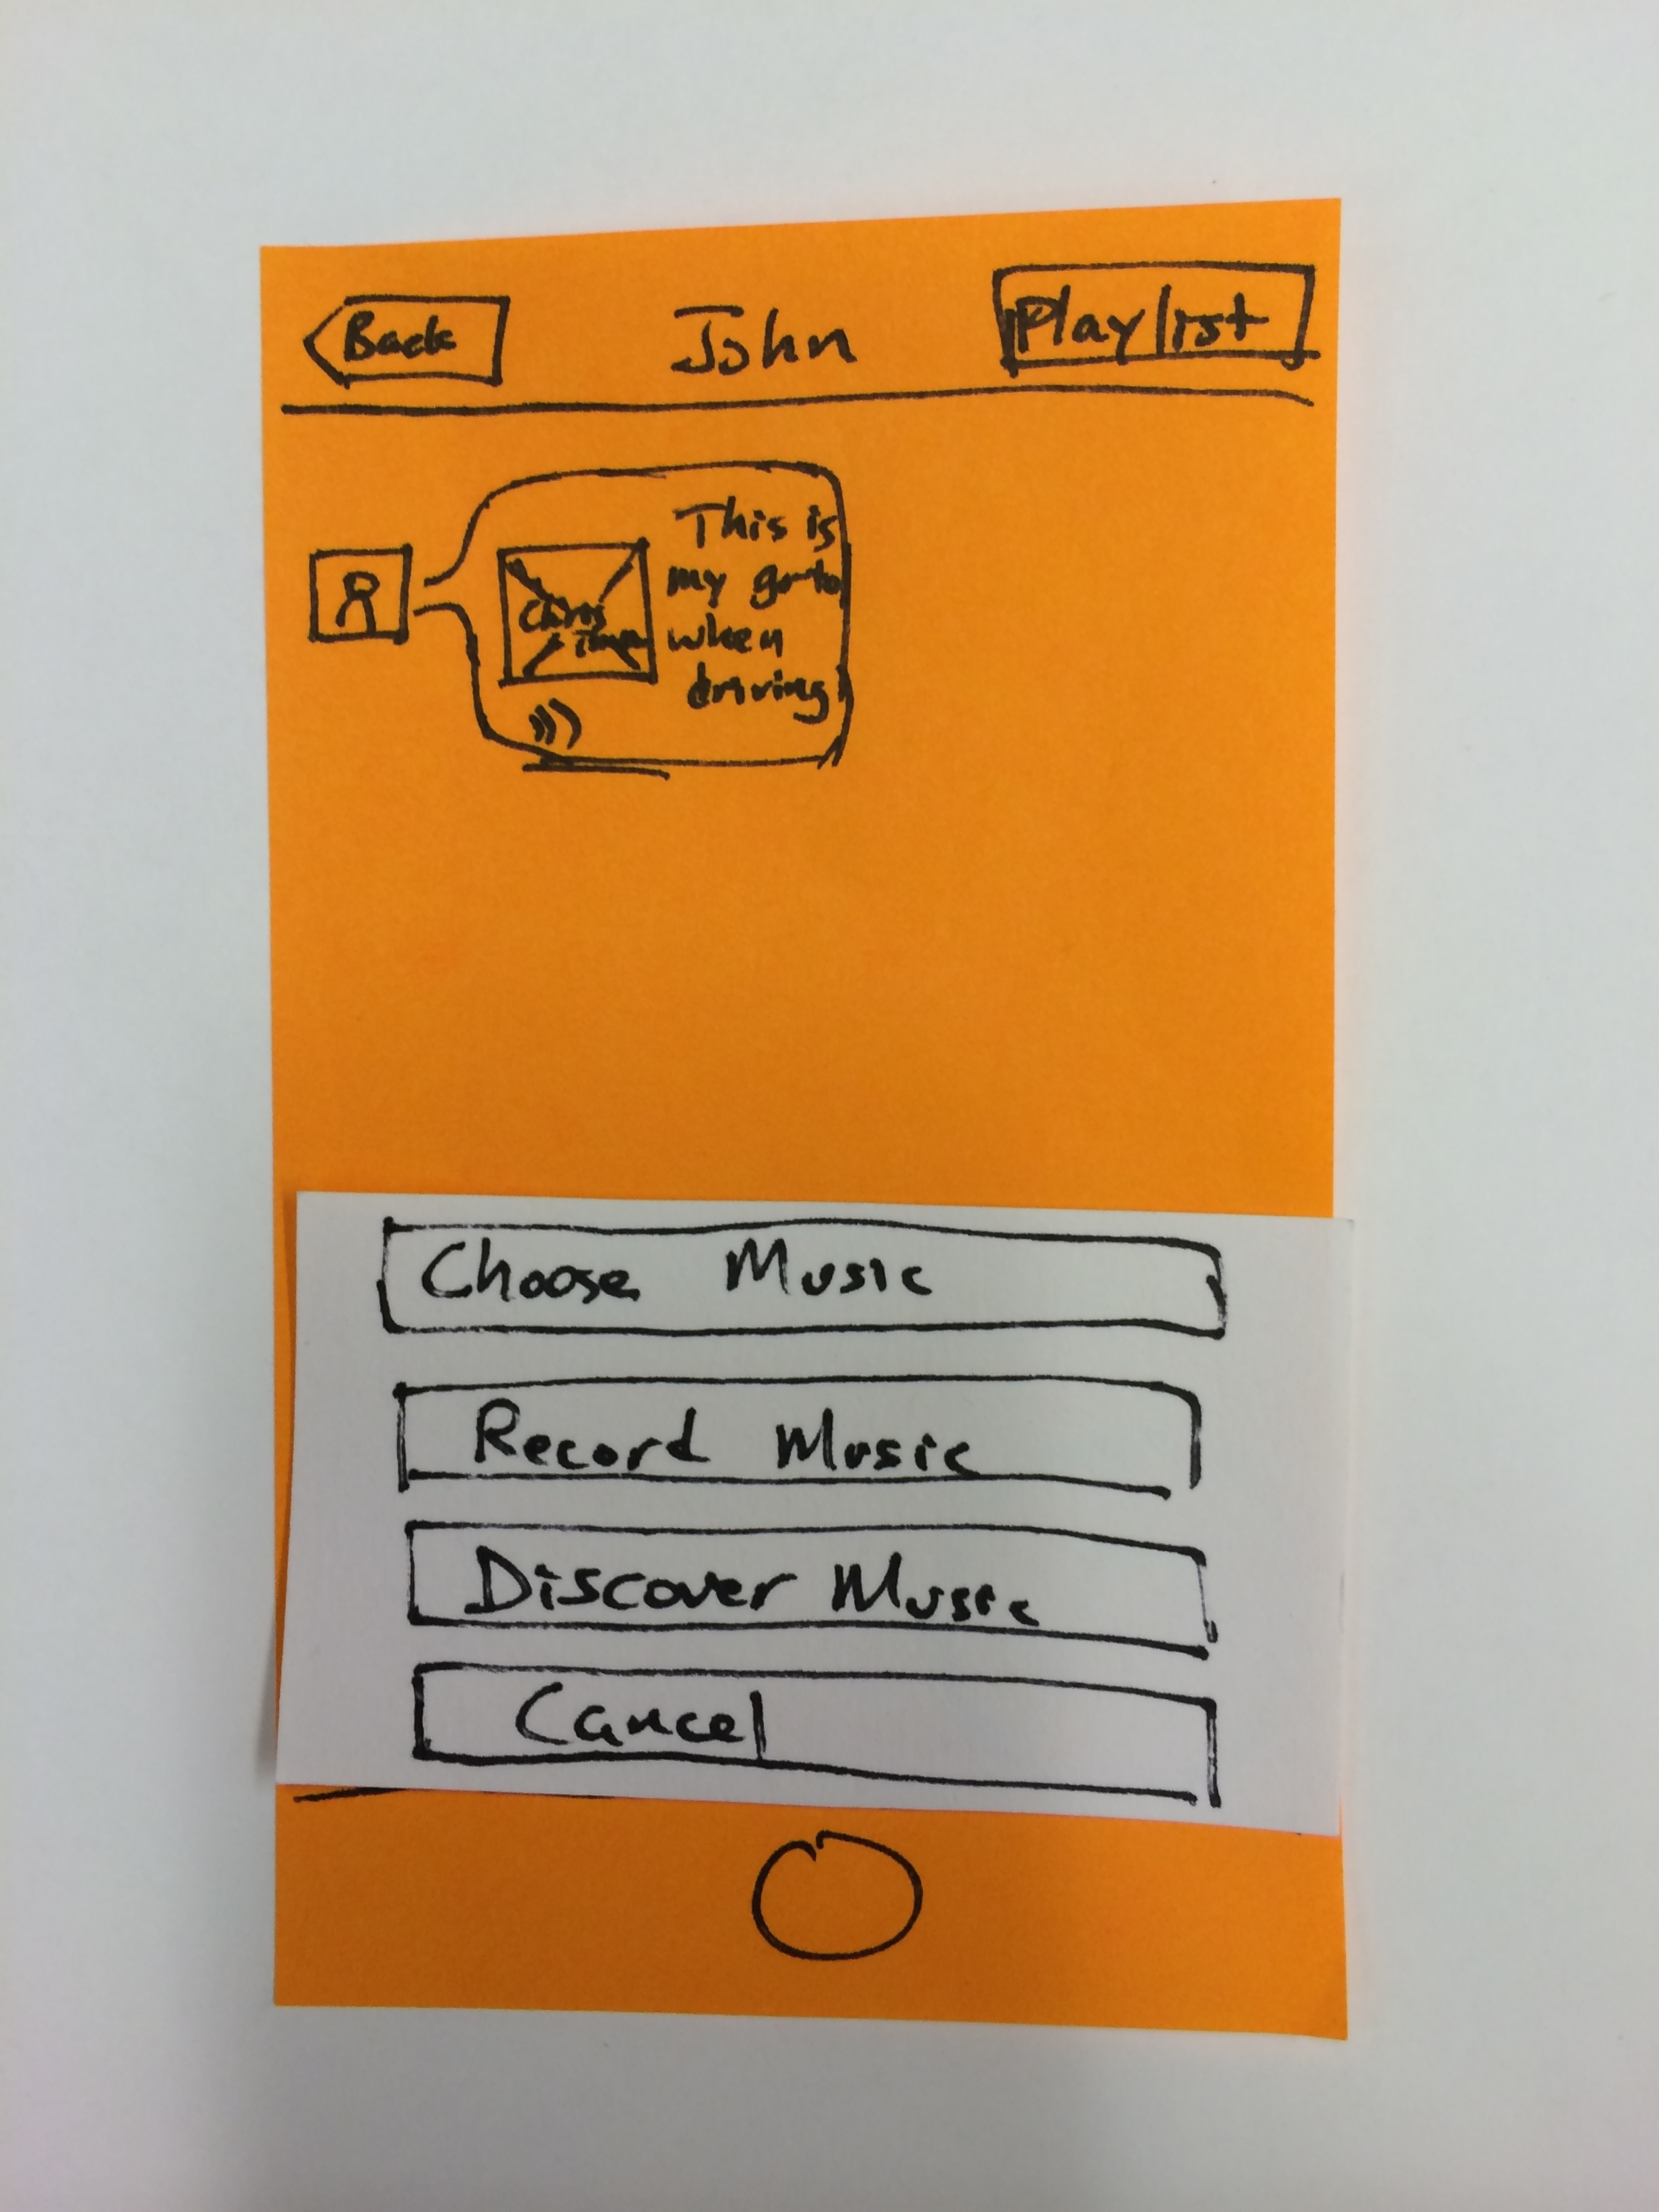 Back
John
Playlist
This is
my go-to
when
driving!
Choose Music
Record Music
Discover Music
Cancel